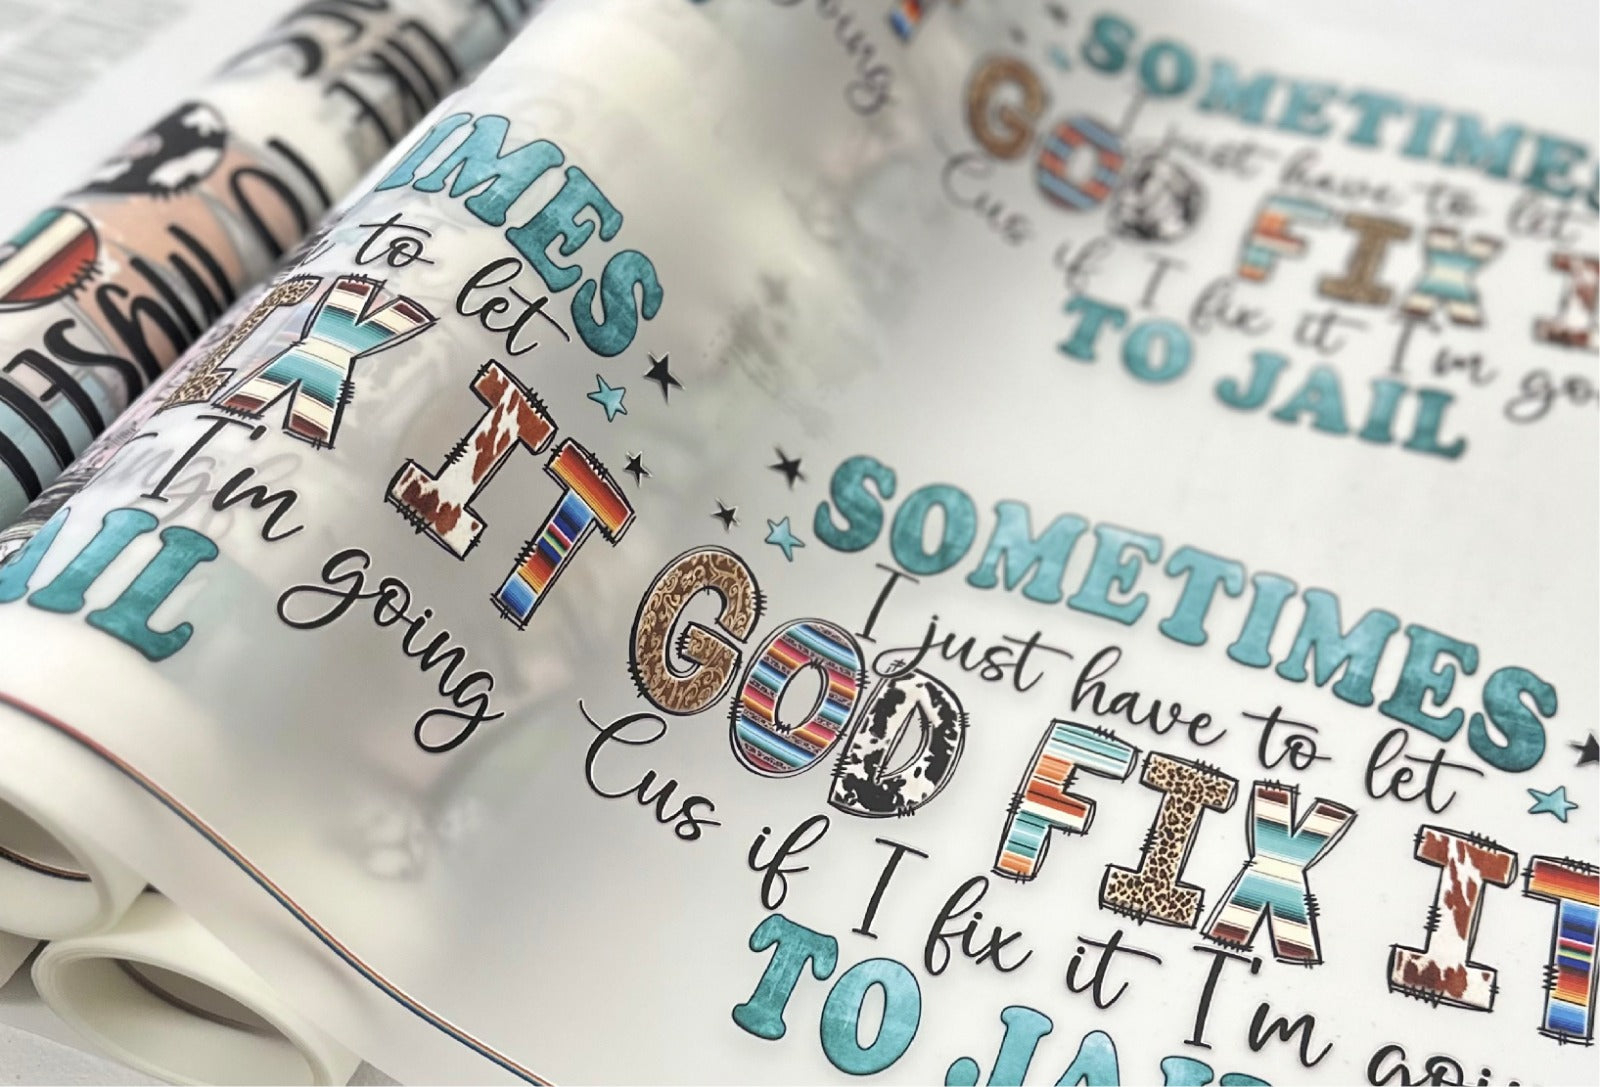 oing
IT
SOMETIMES
I just have to let
GOD FIX I
Cus if I fix it I'm go
TO JAIL
IMES
to let
IX IT
I'm going
AIL
SOMETIMES
I just have to let
GOD FIX IT
Cus if I fix it I'm goi
TO JAI